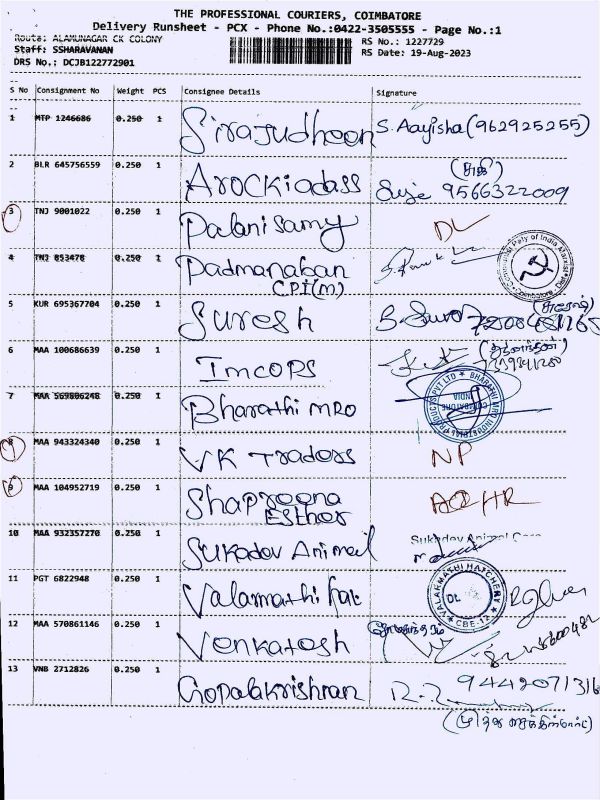 THE PROFESSIONAL COURIERS, COIMBATORE
Delivery Runsheet - PCX - Phone No.:0422-3505555 - Page No.:1
Route: ALAMUNAGAR CK COLONY
RS No.: 1227729
Staff: SSHARAVANAN
RS Date: 19-Aug-2023
DRS No.: DCJB122772901
S No Consignment No Weight PCS Consignee Details Signature
1 MTP 1246686 0.250 1 Sirajudheen S. Aayisha (962925255)
2 BLR 645756559 0.250 1 Arockiadass 9566322009
3 TNJ 9001022 0.250 1 Palanisamy DL
4 TNJ 853478 0.250 1 Padmanaban
CPI(M)
5 KUR 695367704 0.250 1 Suresh
6 MAA 100686639 0.250 1 Imcops
7 MAA 569806248 0.250 1 Bharathi MRO
BHARATHI MRO INDUSTRIAL PRODUCTS PVT LTD
COIMBATORE
INDIA
8 MAA 943324340 0.250 1 VK Traders NP
9 MAA 104952719 0.250 1 Shapreena
Esther
10 MAA 932357270 0.250 1 Sukadev Animail
Sukadev Animal Care
11 PGT 6822948 0.250 1 Valarmathi hat
VALARMATHI HATCHERY
CBE-12
12 MAA 570861146 0.250 1 Venkatesh
13 VNB 2712826 0.250 1 Gopalakrishnan 9442071316